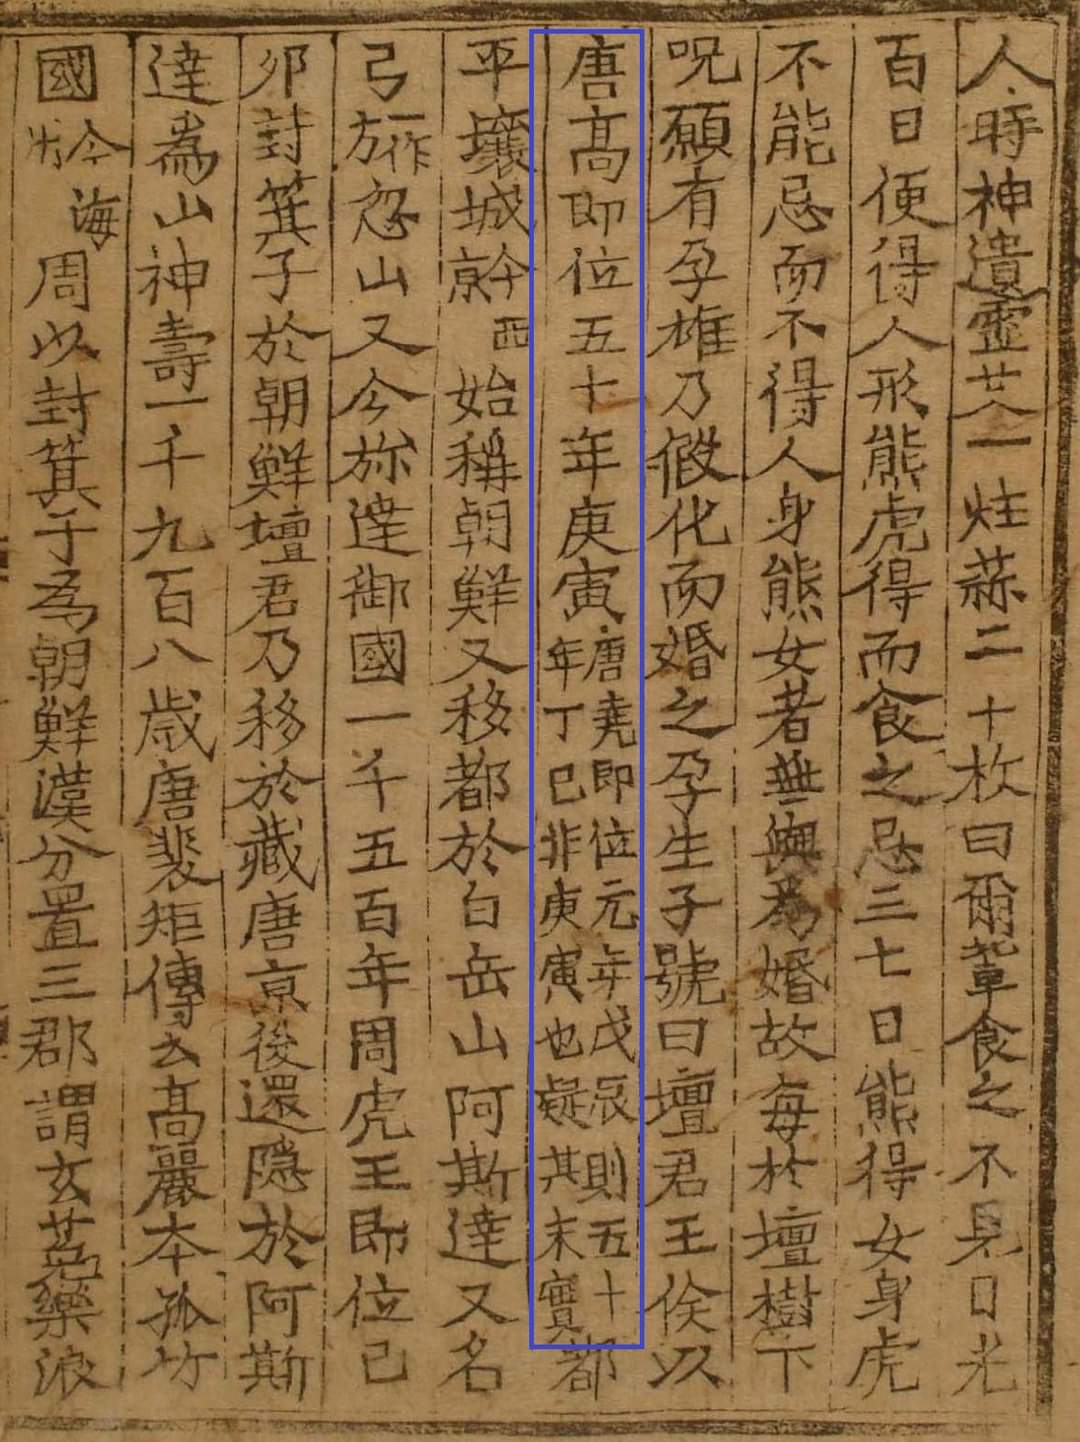 人時神遺霊艾一炷蒜二十枚曰爾軰食之不見日光
百日便得人形熊虎得而食之忌三七日熊得女身虎
不能忌而不得人身熊女者無與為婚故每於壇樹下
呪願有孕雄乃假化而婚之孕生子號曰壇君王俟以
唐髙即位五十年庚寅唐堯即位元年戊辰則五十年丁巳非庚寅也疑其末實都
平壤城今西京始稱朝鮮又移都於白岳山阿斯達又名
弓一作方忽山又今旀達御國一千五百年周虎王即位己
卯封箕子於朝鮮壇君乃移於藏唐京後還隠於阿斯
達為山神壽一千九百八歳唐裴矩傳云髙麗本孤竹
國今海州周以封箕子為朝鮮漢分置三郡謂玄菟樂浪